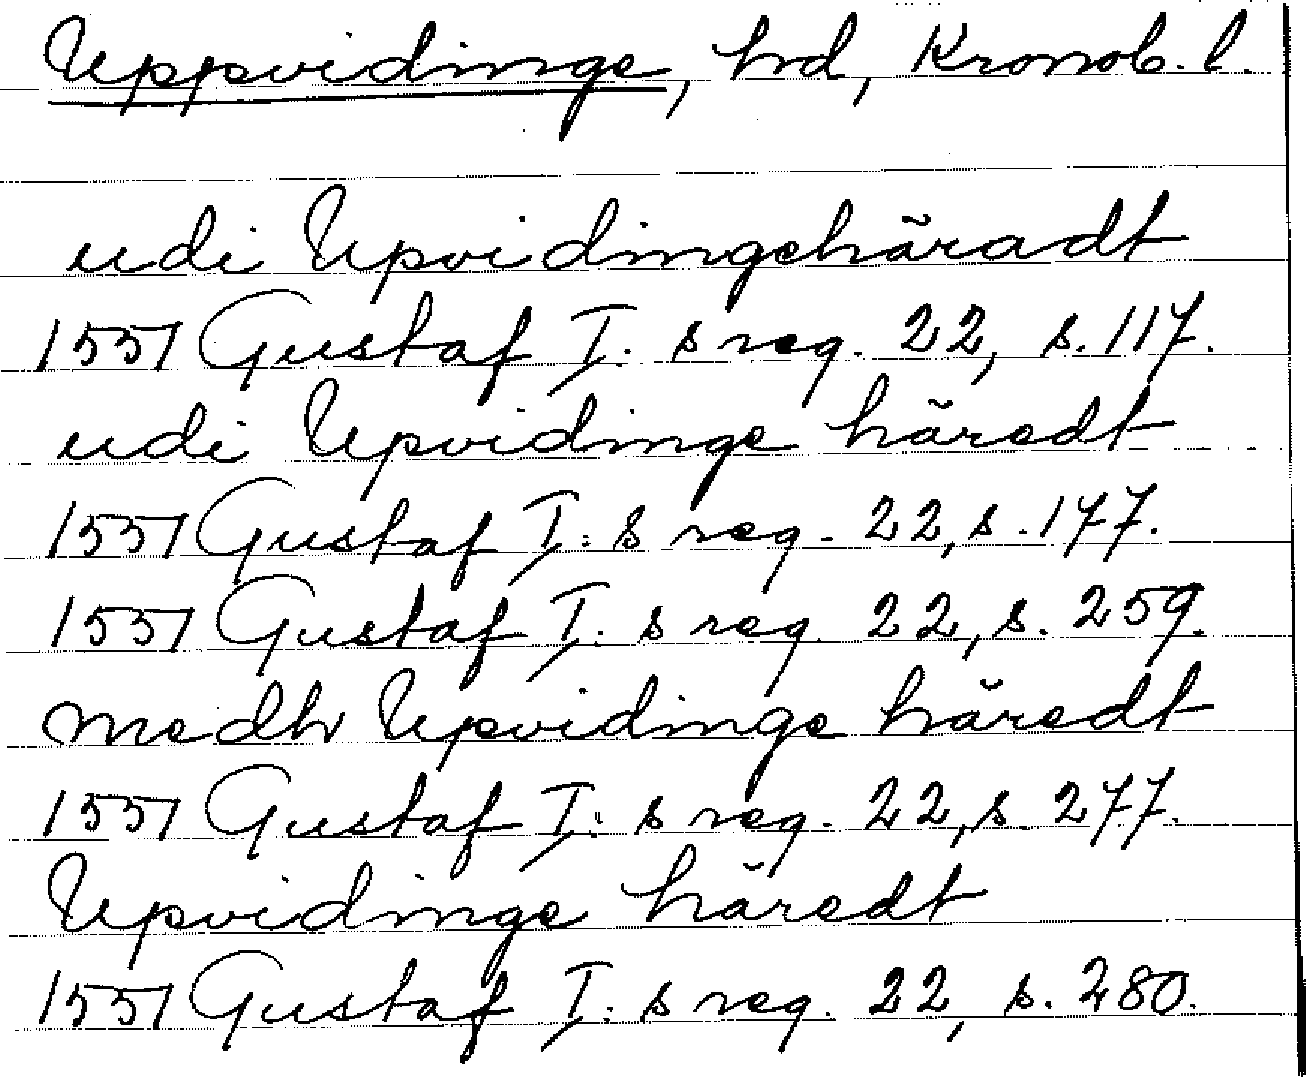 Uppvidinge, hd, Kronob. l.
udi Upvidingehäradt
1551 Gustaf I:s reg. 22, s. 117.
udi Upvidinge häredt
1551 Gustaf I:s reg. 22, s. 177.
1551 Gustaf I:s reg. 22, s. 259.
medh Upvidinge häredt
1551 Gustaf I:s reg. 22, s. 277.
Upvidinge häredt
1551 Gustaf I:s reg. 22, s. 280.